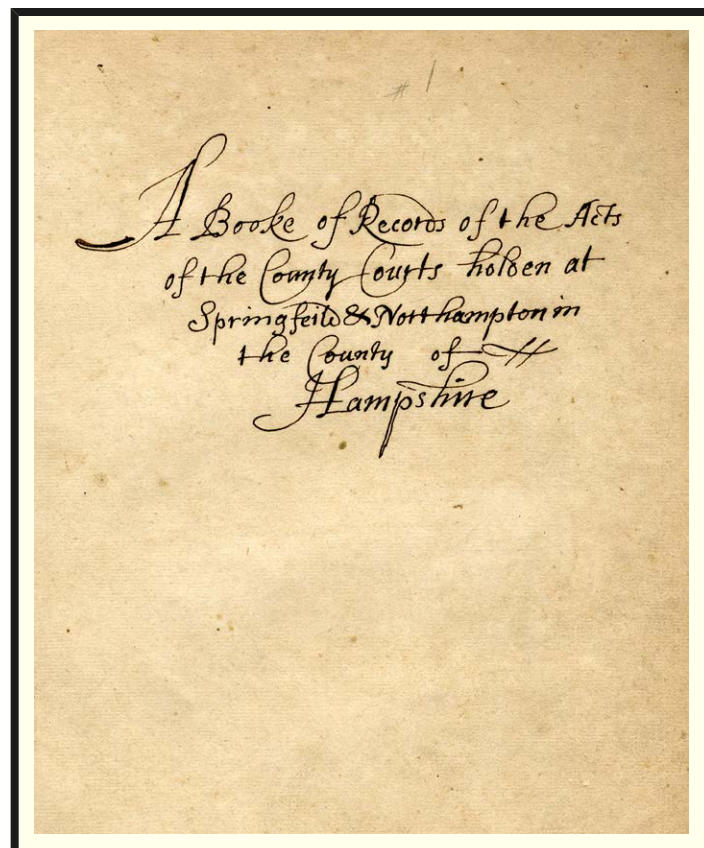 # 1
A Booke of Records of the Acts
of the County Courts holden at
Springfeild & Northampton in
the County of
Hampshire